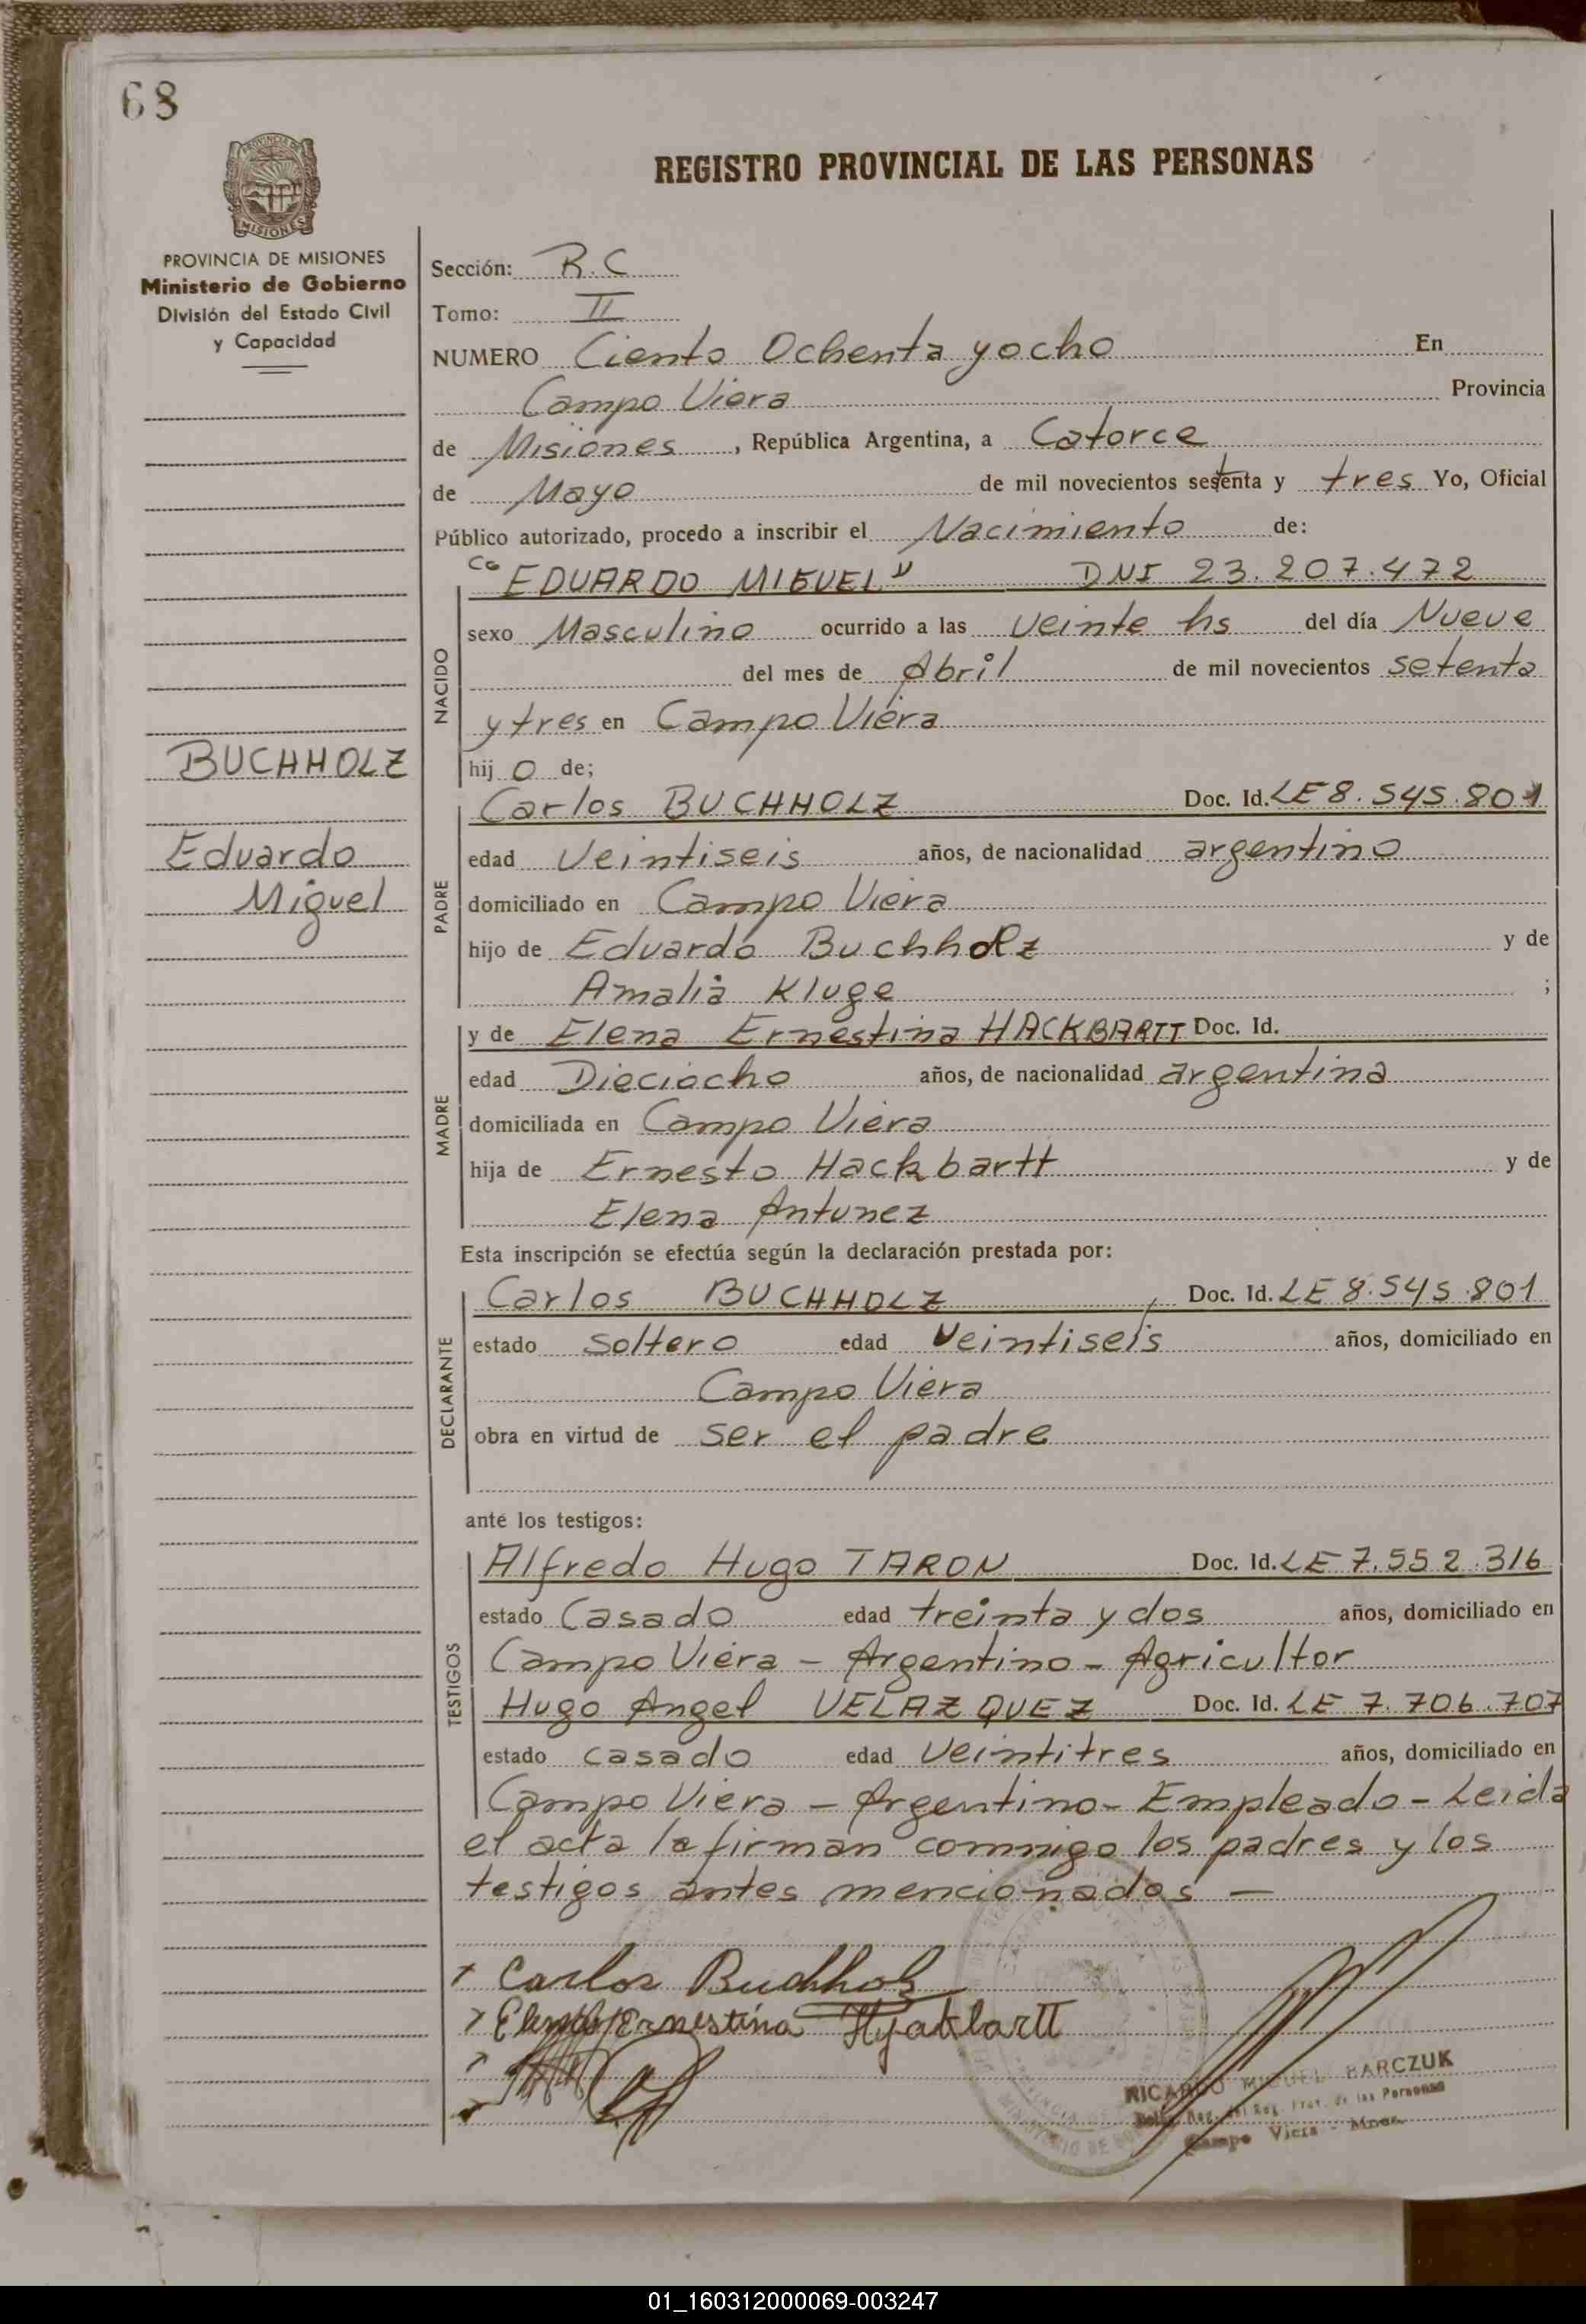 68
PROVINCIA DE MISIONES
Ministerio de Gobierno
División del Estado Civil
y Capacidad
REGISTRO PROVINCIAL DE LAS PERSONAS
Sección: R.C
Tomo: II
NUMERO Ciento Ochenta y ocho En
Campo Viera Provincia
de Misiones, República Argentina, a Catorce
de Mayo de mil novecientos setenta y tres Yo, Oficial
Público autorizado, procedo a inscribir el Nacimiento de:
"EDUARDO MIGUEL" DNI 23.207.472
NACIDO
sexo Masculino ocurrido a las veinte hs del día Nueve
del mes de Abril de mil novecientos setenta
y tres en Campo Viera
hijo de;
BUCHHOLZ
Eduardo
Miguel
PADRE
Carlos BUCHHOLZ Doc. Id. LE 8.545.801
edad Veintiseis años, de nacionalidad argentino
domiciliado en Campo Viera
hijo de Eduardo Buchholz y de
Amalia Kluge ;
MADRE
y de Elena Ernestina HACKBARTT Doc. Id.
edad Dieciocho años, de nacionalidad argentina
domiciliada en Campo Viera
hija de Ernesto Hackbartt y de
Elena Antunez
Esta inscripción se efectúa según la declaración prestada por:
DECLARANTE
Carlos BUCHHOLZ Doc. Id. LE 8.545.801
estado soltero edad veintiseis años, domiciliado en
Campo Viera
obra en virtud de ser el padre
ante los testigos:
TESTIGOS
Alfredo Hugo TARON Doc. Id. LE 7.552.316
estado Casado edad treinta y dos años, domiciliado en
Campo Viera - Argentino - Agricultor
Hugo Angel VELAZQUEZ Doc. Id. LE 7.706.707
estado casado edad Veintitres años, domiciliado en
Campo Viera - Argentino - Empleado - Leida
el acta la firman conmigo los padres y los
testigos antes mencionados -
Carlos Buchholz
Ernestina
RICARDO MIGUEL BARCZUK
Reg. del Reg. Prov. de las Personas
Campo Viera - Mnes.
01_160312000069-003247